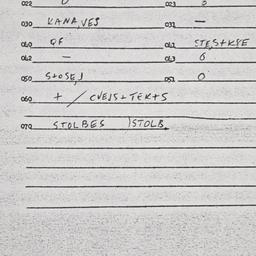 022 023
030 KANA,VES 031 —
040 QF 041 STE,S+KYE
042 — 043 0
050 S+OSE,J 051 0
060 + / CVEJS+TEK+S
070 STOLBES )STOLB,